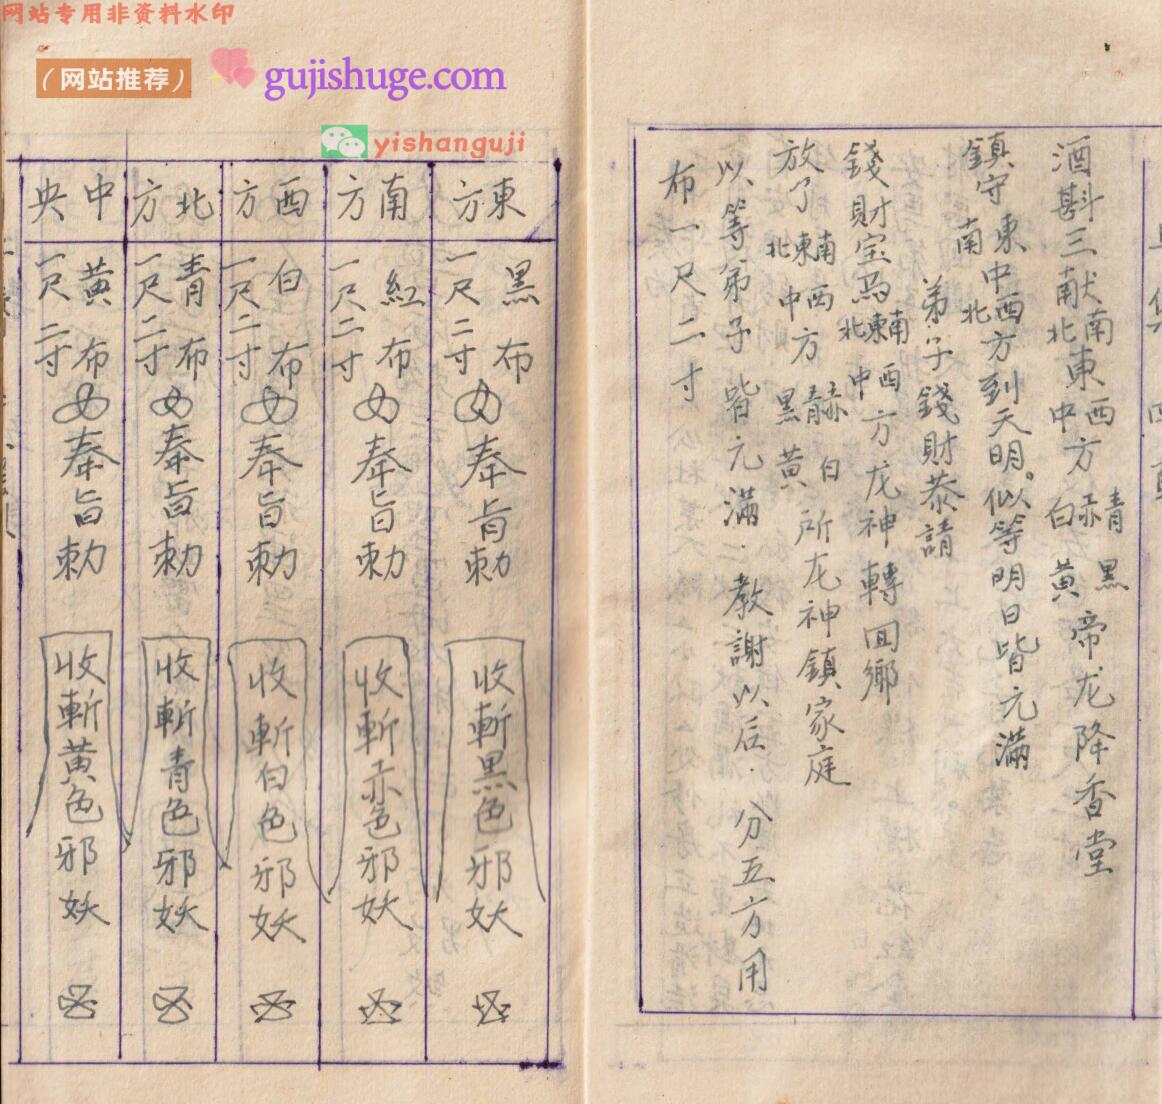 网站专用非资料水印
（网站推荐）
gujishuge.com
yishanguji
酒斟三献南北東西中方 青赤白黑黄帝龙降香堂
鎮守東南中西北方到天明。似等明日皆元滿
弟子錢財恭請
錢財宝马南東北西中方龙神轉回鄉
放了南東北西中方 赫青黑白黄所龙神鎮家庭
以等弟子皆元滿．教謝以后．分五方用
布一尺二寸
東方
黑布一尺二寸
奉旨勅
收斬黑色邪妖
南方
紅布一尺二寸
奉旨勅
收斬赤色邪妖
西方
白布一尺二寸
奉旨勅
收斬白色邪妖
北方
青布一尺二寸
奉旨勅
收斬青色邪妖
中央
黄布一尺二寸
奉旨勅
收斬黄色邪妖